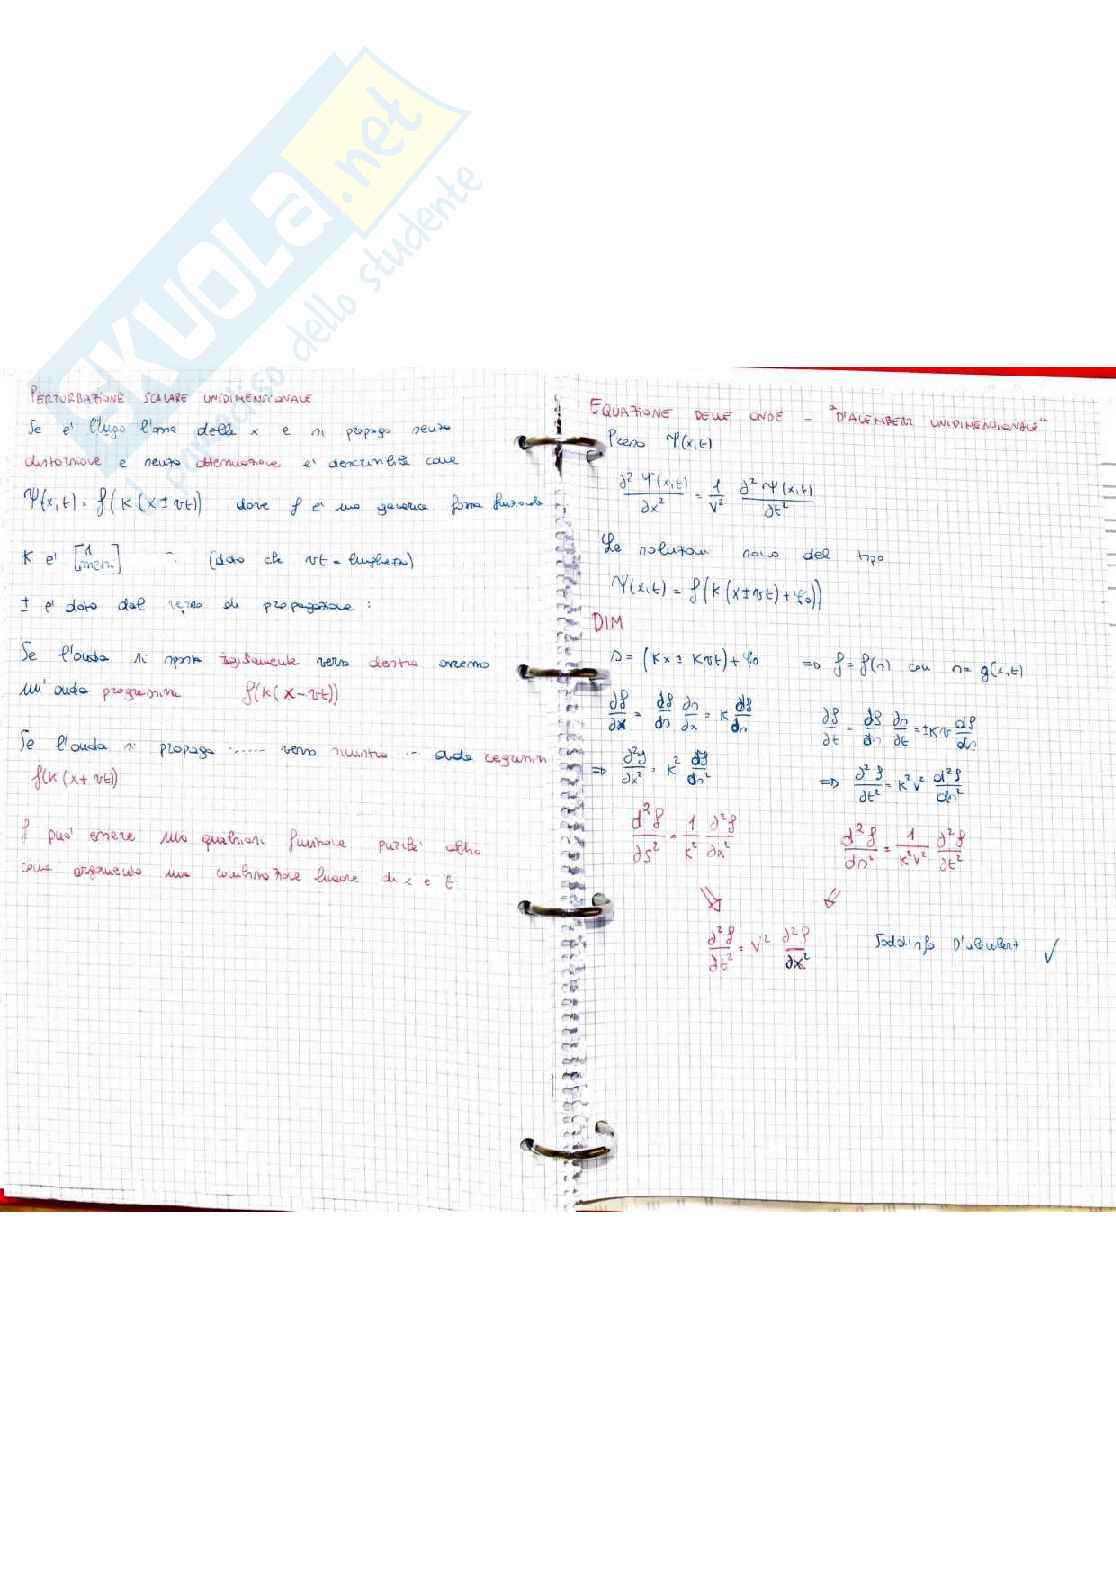 SKUOLA.net
paradiso dello studente
PERTURBAZIONE SCALARE UNIDIMENSIONALE
Se è lungo l'asse delle x e si propaga senza
distorsione e senza attenuazione è descrivibile come
Ψ(x,t) = f(K(x±vt)) dove f è una generica forma funzionale
K è [1/m] (dato che vt = lunghezza)
± è dato dal verso di propagazione:
Se l'onda si sposta rigidamente verso destra avremo
un'onda progressiva f(K(x-vt))
Se l'onda si propaga ...... verso sinistra - onda regressiva
f(K(x+vt))
f può essere una qualsiasi funzione purché abbia
come argomento una combinazione lineare di x e t
EQUAZIONE DELLE ONDE - "D'ALEMBERT UNIDIMENSIONALE"
Presa Ψ(x,t)
∂²Ψ(x,t)/∂x² = 1/v² ∂²Ψ(x,t)/∂t²
Le soluzioni sono del tipo
Ψ(x,t) = f(K(x±vt)+φ₀))
DIM
s = (Kx ± Kvt) + φ₀ ⇒ f = f(s) con s = g(x,t)
∂f/∂x = df/ds ∂s/∂x = K df/ds ∂f/∂t = df/ds ∂s/∂t = ±Kv df/ds
⇒ ∂²f/∂x² = K² df/ds² ⇒ ∂²f/∂t² = K²v² d²f/ds²
d²f/∂s² = 1/K² ∂²f/∂x² d²f/ds² = 1/K²v² ∂²f/∂t²
∂²f/∂t² = v² ∂²f/∂x² Soddisfa D'Alembert ✓